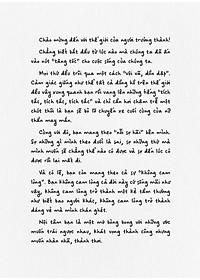 Chào mừng đến với thế giới của người trưởng thành!
Chẳng biết bắt đầu từ lúc nào mà chúng ta đã ấn
vào nút "tăng tốc" cho cuộc sống của chúng ta.
Mọi thứ đều trôi qua một cách "vội vã, dồn dập".
Cảm giác giống như thể tất cả đồng hồ trên thế giới
đều vây xung quanh bạn rồi vang lên những tiếng "tích
tắc, tích tắc, tích tắc" và chỉ cần bạn chậm trễ một
chút thôi là bạn sẽ bị lỡ chuyến xe cuối cùng của cả
một tuổi trẻ.
Cùng với đó, bạn mang theo "nỗi sợ hãi" bên mình.
Sợ những gì mình theo đuổi là sai, sợ những thứ mà
mình muốn sẽ chẳng thể nào có được và sợ đến lúc có
được rồi lại mất đi.
Và có lẽ, bạn còn mang theo cả sự "không cam
lòng". Bạn không cam lòng cả đời này cứ sống mãi như
vậy, không cam lòng trở thành một kẻ tầm thường
như biết bao người khác, không cam lòng trở thành
dáng vẻ mà mình chán ghét.
Nội tâm bạn là một mớ bòng bong với những ước
muốn trái ngược nhau, khát vọng thành công nhưng
muốn nhàn nhã, thảnh thơi.